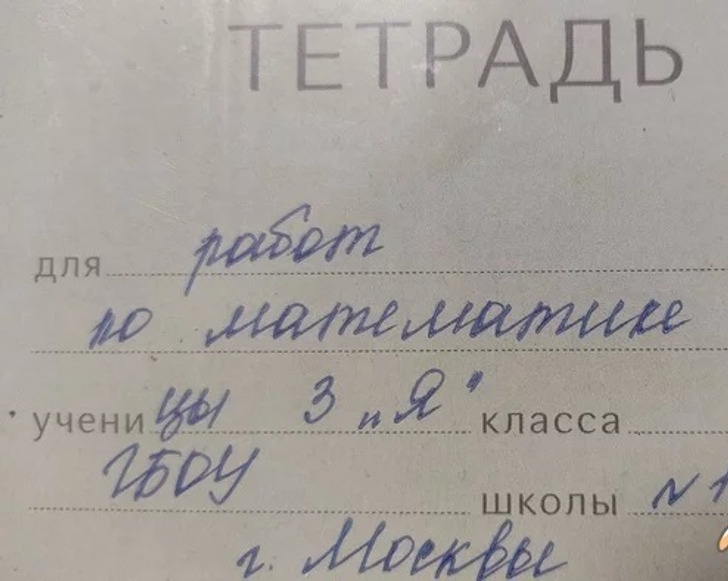 ТЕТРАДЬ
для работ
по математике
ученицы 3 „Я" класса
ГБОУ школы №1
г. Москвы